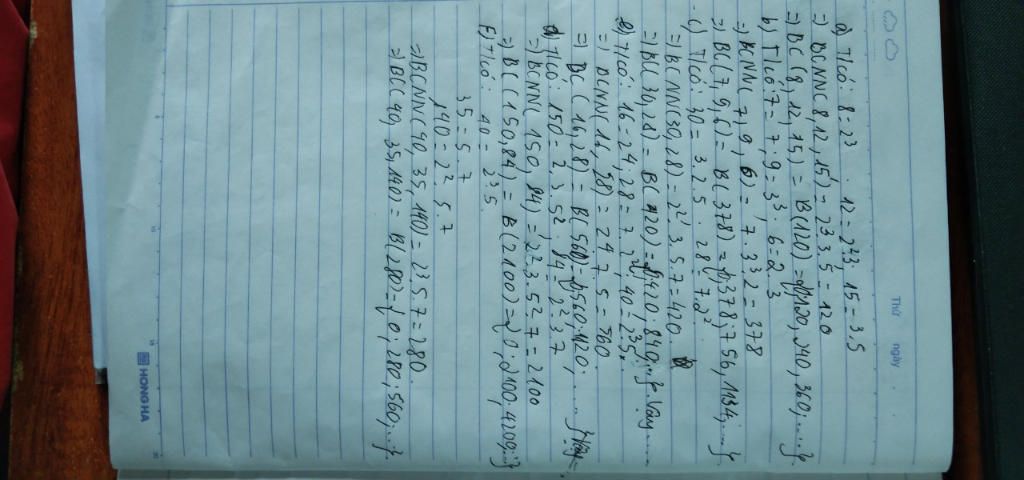 Thứ ngày
a) Ta có: 8 = 2^3 . 12 = 2^2.3; 15 = 3.5
=) BCNN(8,12,15) = 2^3.3.5 = 120
=) BC(8,12,15) = B(120) = {0;120,240,360;....}
b) Ta có: 7 = 7, 9 = 3^3, 6 = 2.3
=) BCNN(7,9,6) = 7.3^3.2 = 378
=) BC(7,9,6) = B(378) = {0;378;756,1134;...}
c) Ta có: 30 = 3.2.5, 28 = 7.2^2
=) BCNN(30,28) = 2^2.3.5.7 = 420
=) BC(30,28) = B(420) = {0;420;840;...} Vay.....
e) Ta có: 16 = 2^4, 28 = 7.2^2, 40 = 2^3.5
=) BCNN(16,28) = 2^4.7.5 = 560
=) BC(16,28) = B(560) = {0;560;1120,.....}
d) Ta có: 150 = 2.3.5^2, 84 = 2^2.3.7
=) BCNN(150,84) = 2^2.3.5^2.7 = 2100
=) BC(150,84) = B(2100) = {0;2100.4200;...}
f) Ta có: 40 = 2^3.5
35 = 5.7
140 = 2^2.5.7
=) BCNN(40,35,140) = 2^3.5.7 = 280.
=) BC(40,35,140) = B(280) = {0;280;560;...}
HONG HA